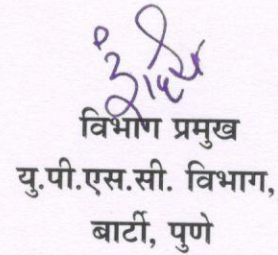 विभाग प्रमुख
यु.पी.एस.सी. विभाग,
बार्टी, पुणे